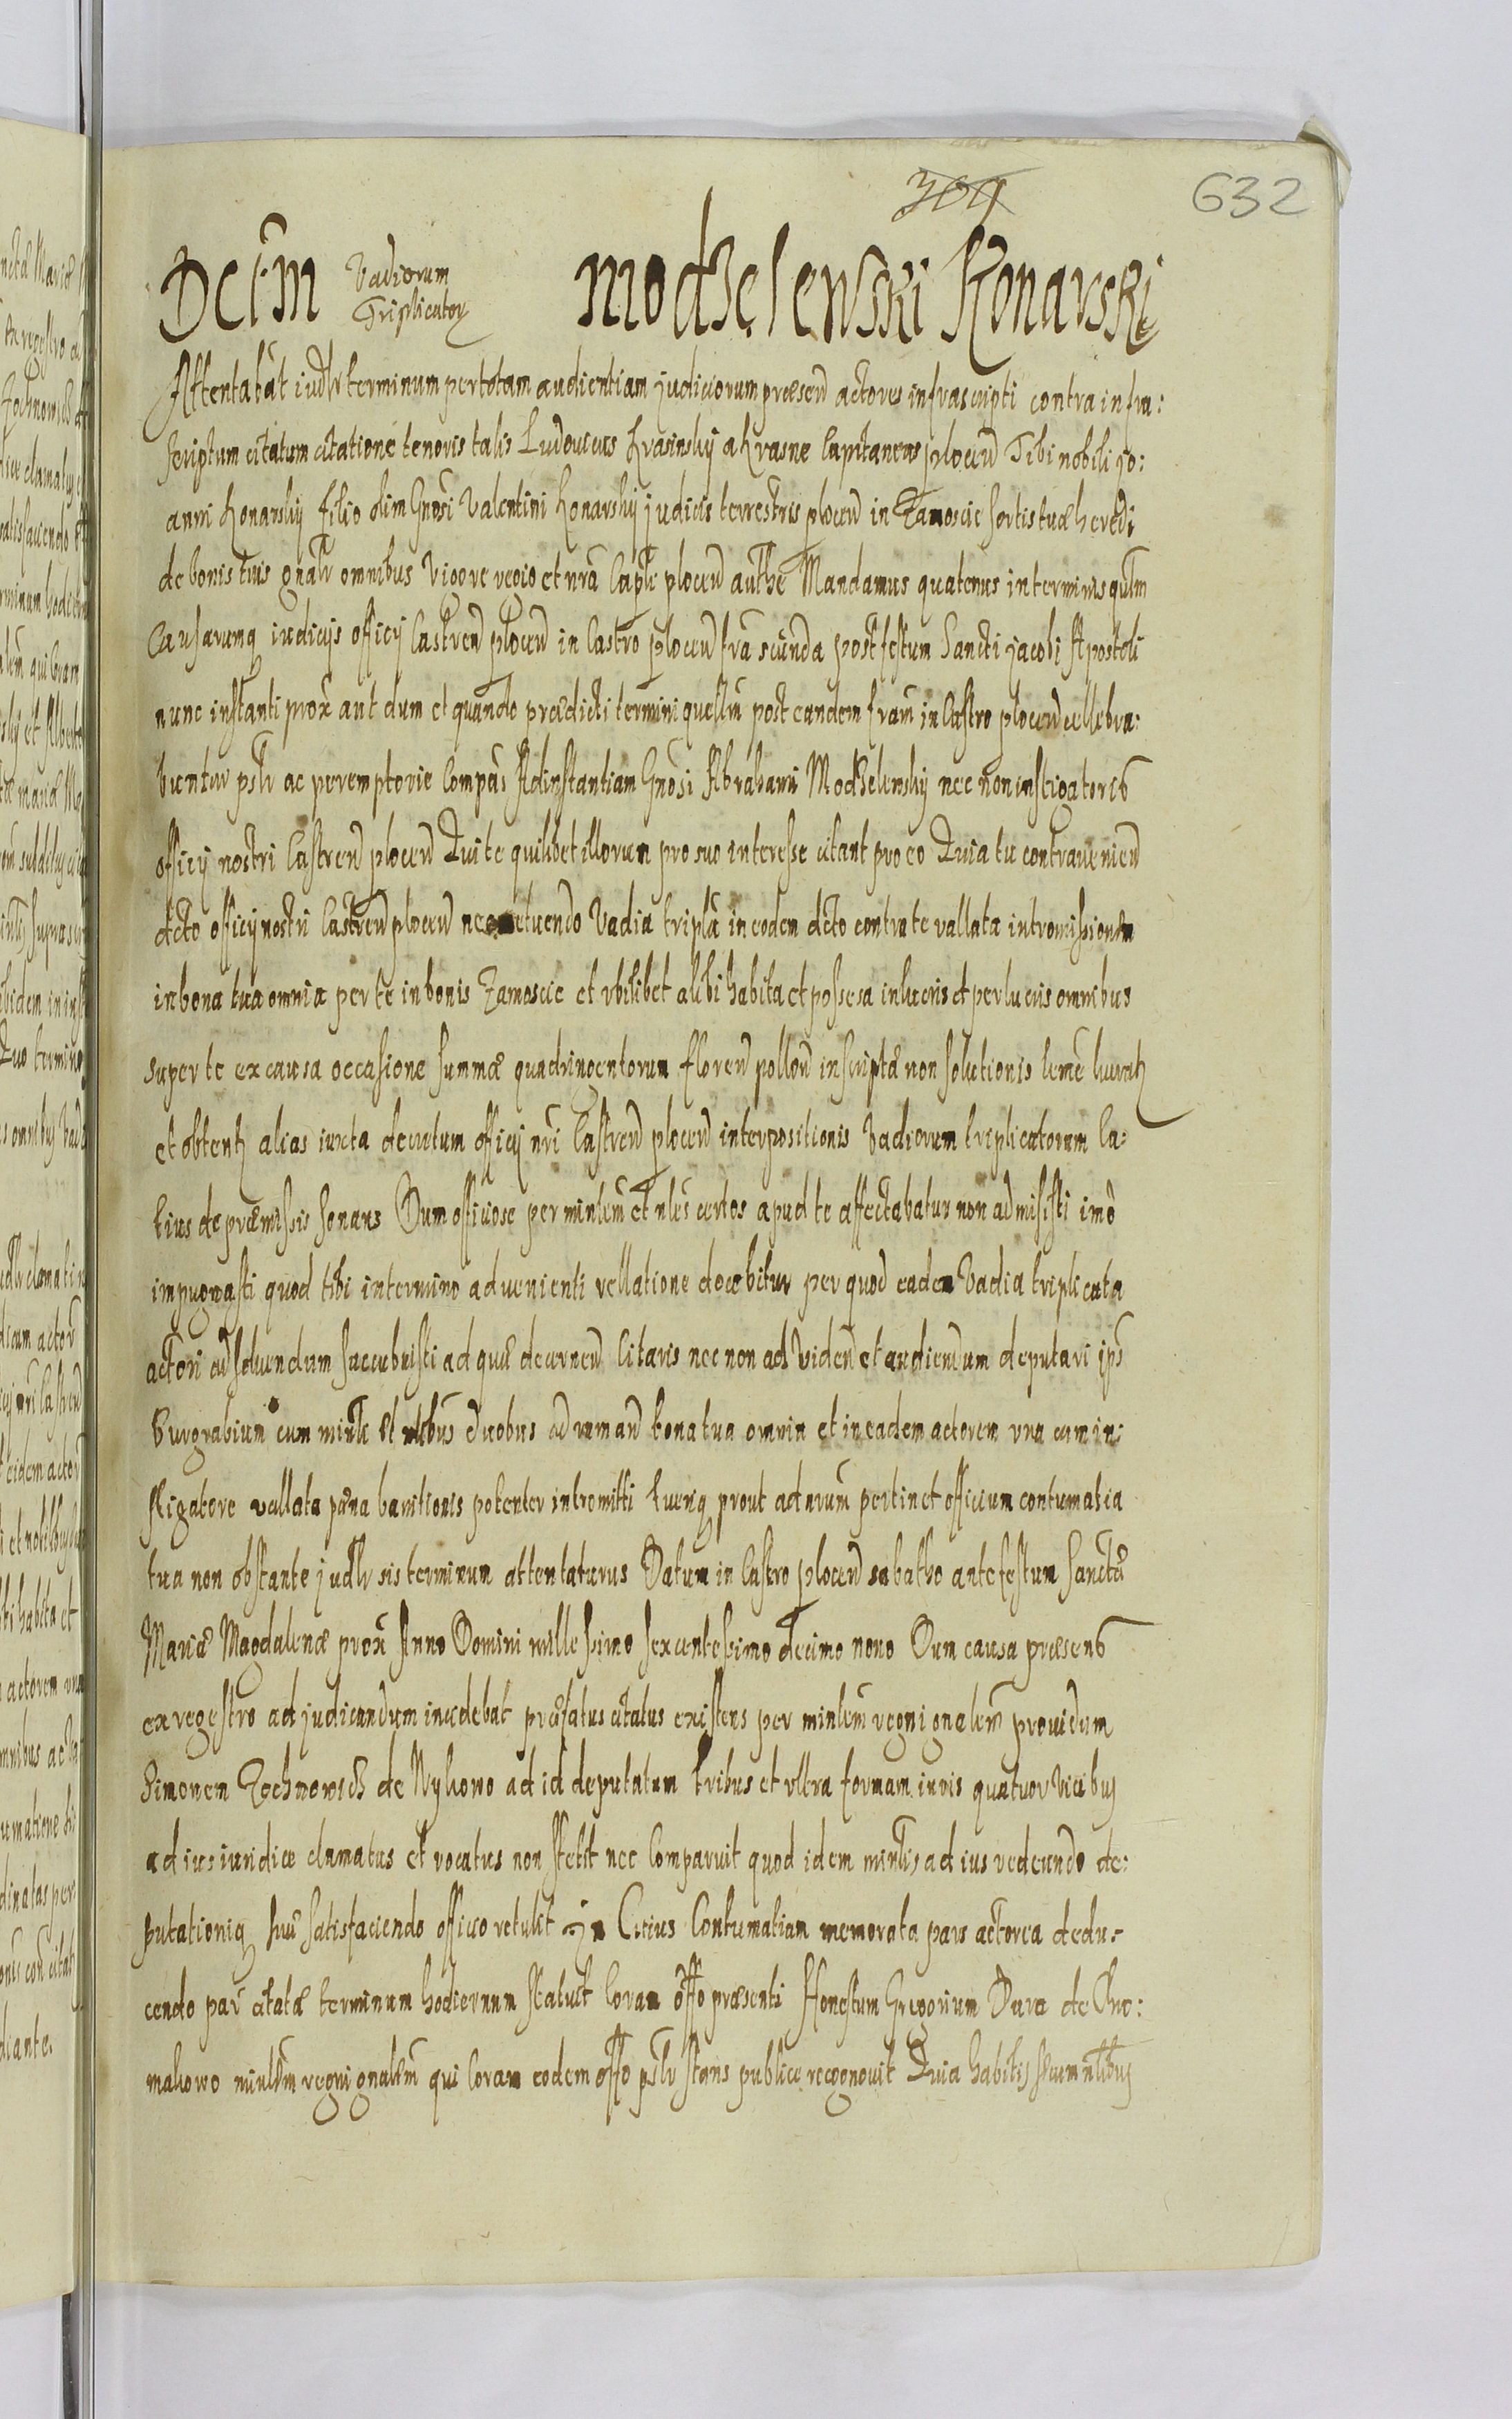 309
632
Dctm Vadiorum Triplicator Modzelewski Konarski
Attentabat iudlr terminum per totam audientiam judiciorum præsen actores infrascripti contra infra:
scriptum citatum citatione tenoris talis Ludouicus Krasinskj a Krasne Capitaneus plocen Tibi nobili Jo:
anni Konarskj filio olim Gnosi Valentini Konarskj judicis terrestris plocen in Zamoscie sortis tuæ heredi
de bonis tuis gnalr omnibus Vigore regio et nra Capli plocen authe Mandamus quatenus in terminis qulm
Causarumq iudicijs officij Castren plocen in Castro plocen fra scunda post festum Sancti Jacobi Apostoli
nunc instanti prox aut dum et quando prædicti termini quæslm post eandem fram in Castro plocen cellebra:
buntur pslr ac peremptorie Compas Ad instantiam Gnosi Abrahami Modzelewskj nec non instigatoris
officij nostri Castren plocen Qui te quilibet illorum pro suo interesse citant pro eo Quia tu contrauenien
dcto officij nostri Castren plocen nec metuendo Vadia tripla in eodem dcto contra te vallata intromissionem
in bona tua omnia per te in bonis Zamoscie et vbilibet alibi habita et possesa in lucris et per lucris omnibus
super te ex causa occasione summæ quadringentorum floren pollon inscriptæ non solutionis leme lucratz
et obtentz alias iuxta decretum officij nri Castren plocen interpositionis Vadiorum triplicatorum la:
tius de præmissis sonans Dum officiose per minlem et nles certos apud te affectabatur non admisisti imo
impugnasti quod tibi in termino aduenienti rellatione docebitur per quod eadem Vadia triplicata
actori ad soluendum succubuisti ad quæ decernen Citaris nec non ad Viden et audiendum deputari ips
Burgrabium cum minle et nlibus duobus ad reman bona tua omnia et in eadem actorem vna cum in:
stigatore vallata pæna banitionis potenter intromitti tueriq prout ad nrum pertinet officium contumatia
tua non obstante judlr sis terminum attentaturus Datum in Castro plocen sabatho ante festum Sanctæ
Mariæ Magdalenæ prox Anno Domini millesimo sexcentesimo decimo nono Dum causa præsens
ex regestro ad judicandum incidebat præfatus citatus existens per minlem regni gnalem prouidum
Simonem Zochnowicz de Nykowo ad id deputatum tribus et vltra formam iuris quatuor vicibus
ad ius iuridice clamatus et vocatus non stetit nec Comparuit quod idem minlis ad ius redeundo de:
putationiq suæ satisfaciendo officio retulit In Citius Contumatiam memorata pars actorea dedu:
cendo par citatæ terminum hodiernum statuit Coram offo præsenti Honestum Gregorium Dura de
makowo minlem regni gnalem qui Coram eodem offo pslr stans publice recognouit Quia habitis secum nlibus